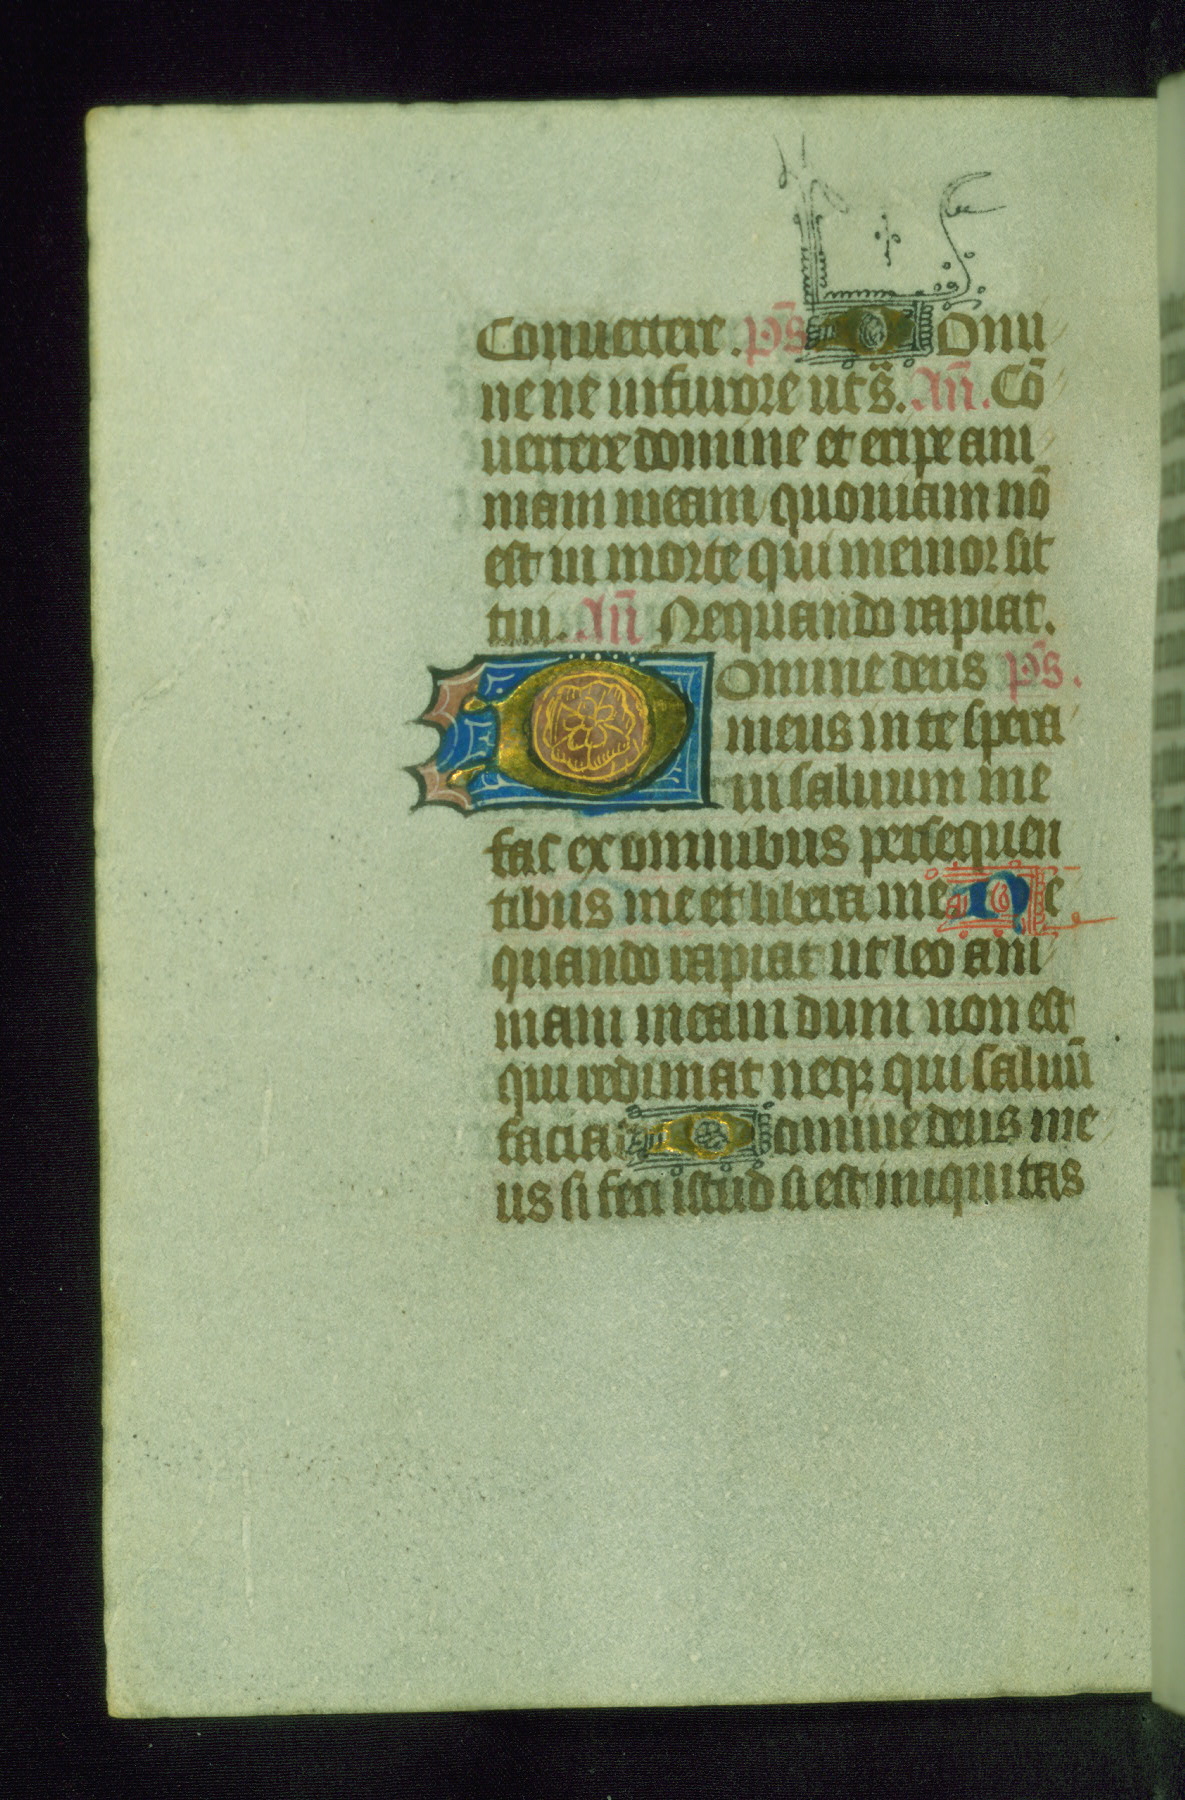 Conuertere. p̄s Domi
ne ne in furore ut s̄. An̄. Cō
uertere domine et eripe ani
mam meam quoniam nō
est in morte qui memor sit
tui. An̄ Nequando rapiat.
Domine deus p̄s.
meus in te spera
ui saluum me
fac ex omnibus persequen
tibus me et libera me Ne
quando rapiat ut leo ani
mam meam dum non est
qui redimat neqꝫ qui saluū
faciat Domine deus me
us si feci istud si est iniquitas